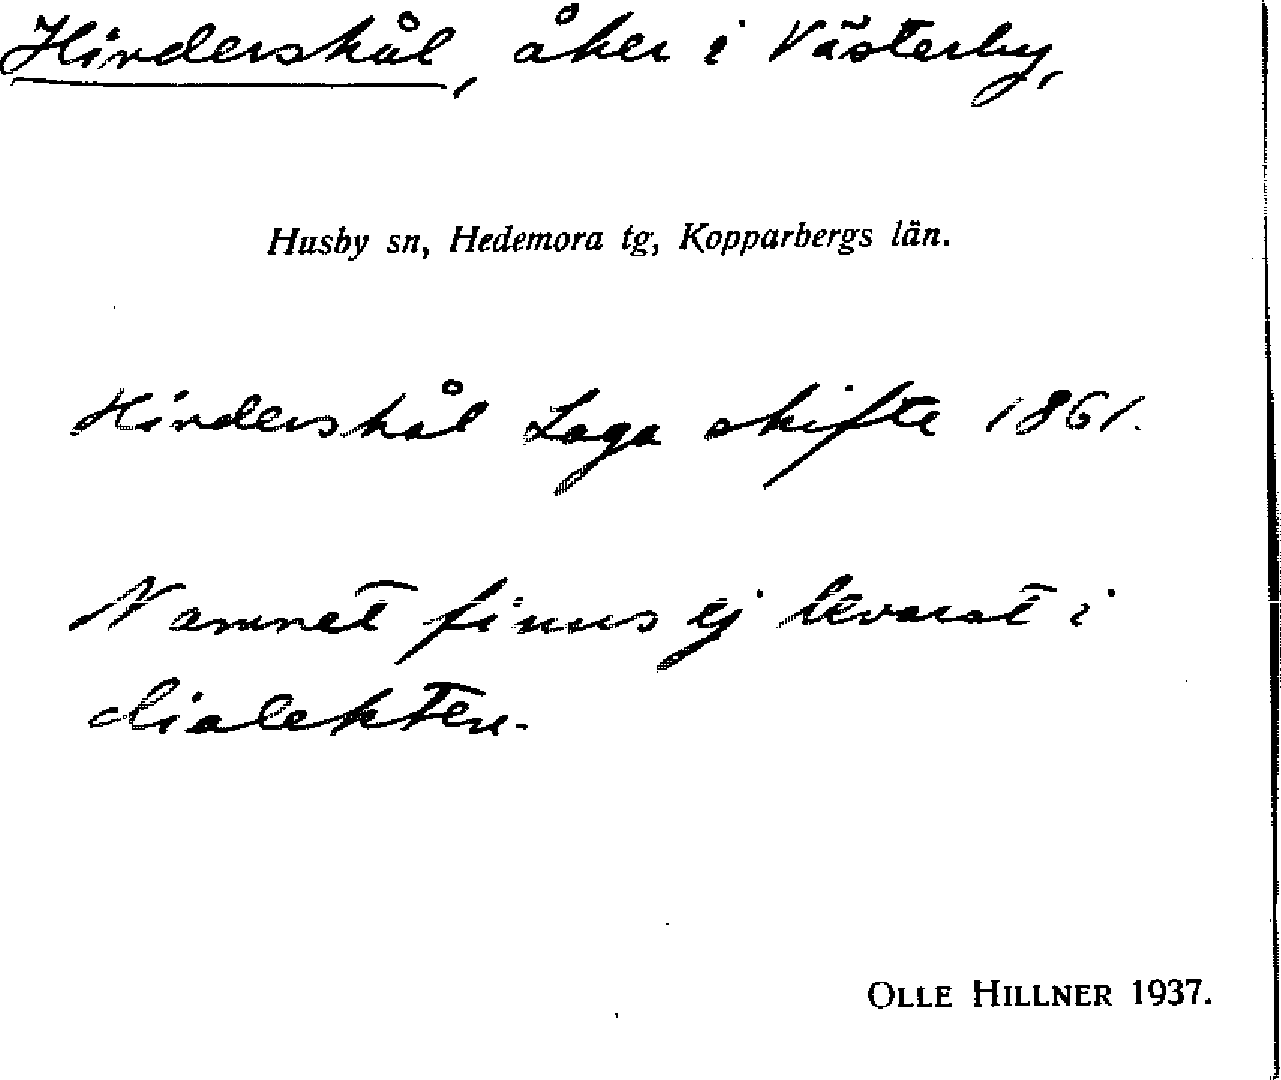 Hinderskål, åker i Västerby,
Husby sn, Hedemora tg, Kopparbergs län.
Hinderskål Laga skifte 1861.
Namnet finns ej bevarat i
dialekten.
OLLE HILLNER 1937.